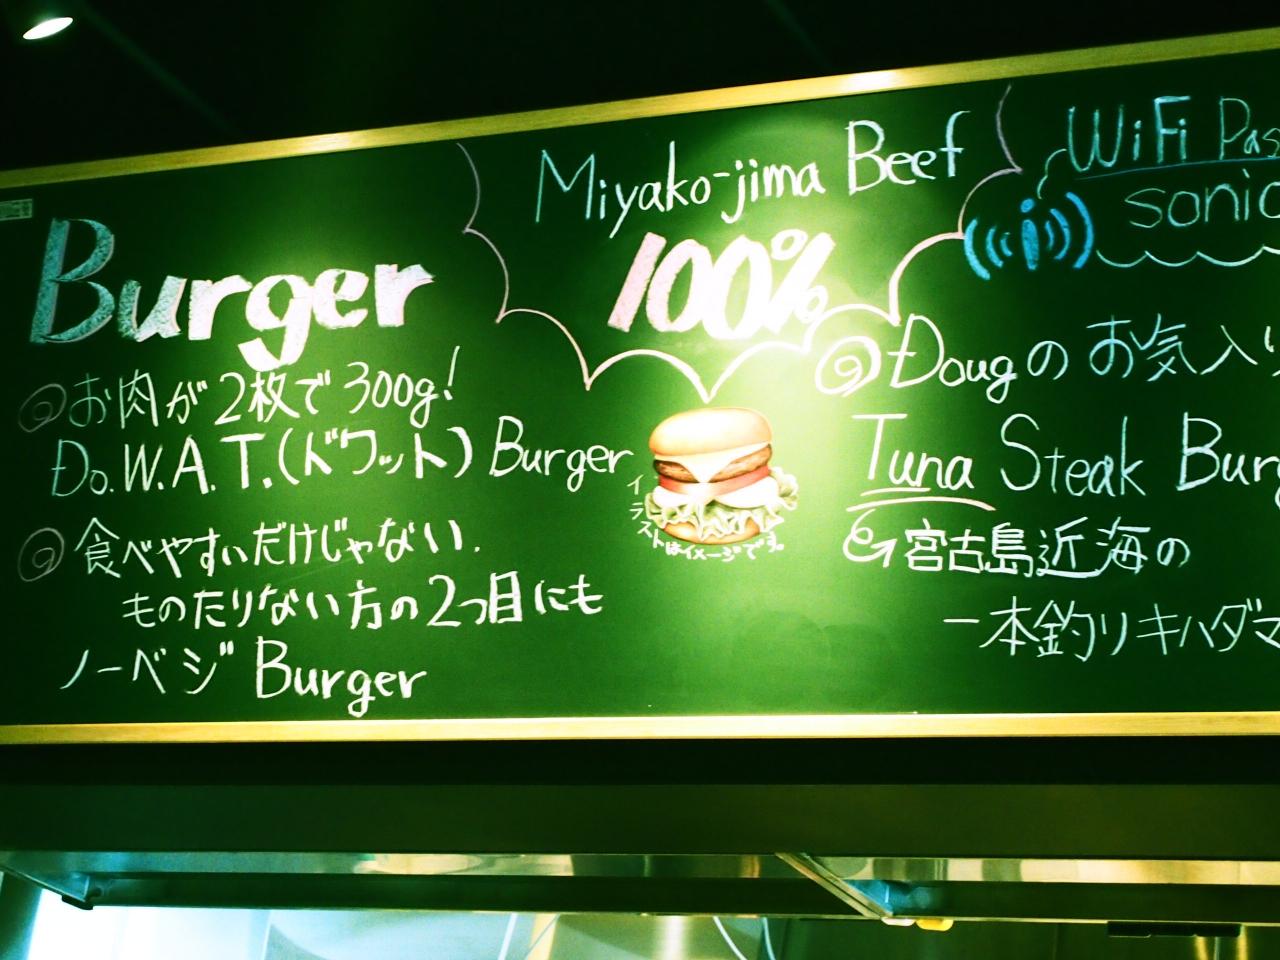 Burger
◎お肉が2枚で300g!
Do.W.A.T.(ドワット) Burger
◎食べやすいだけじゃない.
ものたりない方の2つ目にも
ノーベジ Burger
Miyako-jima Beef
100%
イラストはイメージです。
WiFi Pas
sonic
◎Dougのお気入り
Tuna Steak Burg
宮古島近海の
一本釣りキハダマ